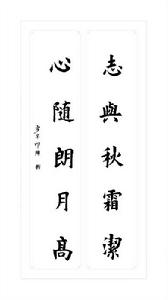 志與秋霜潔
心隨朗月高